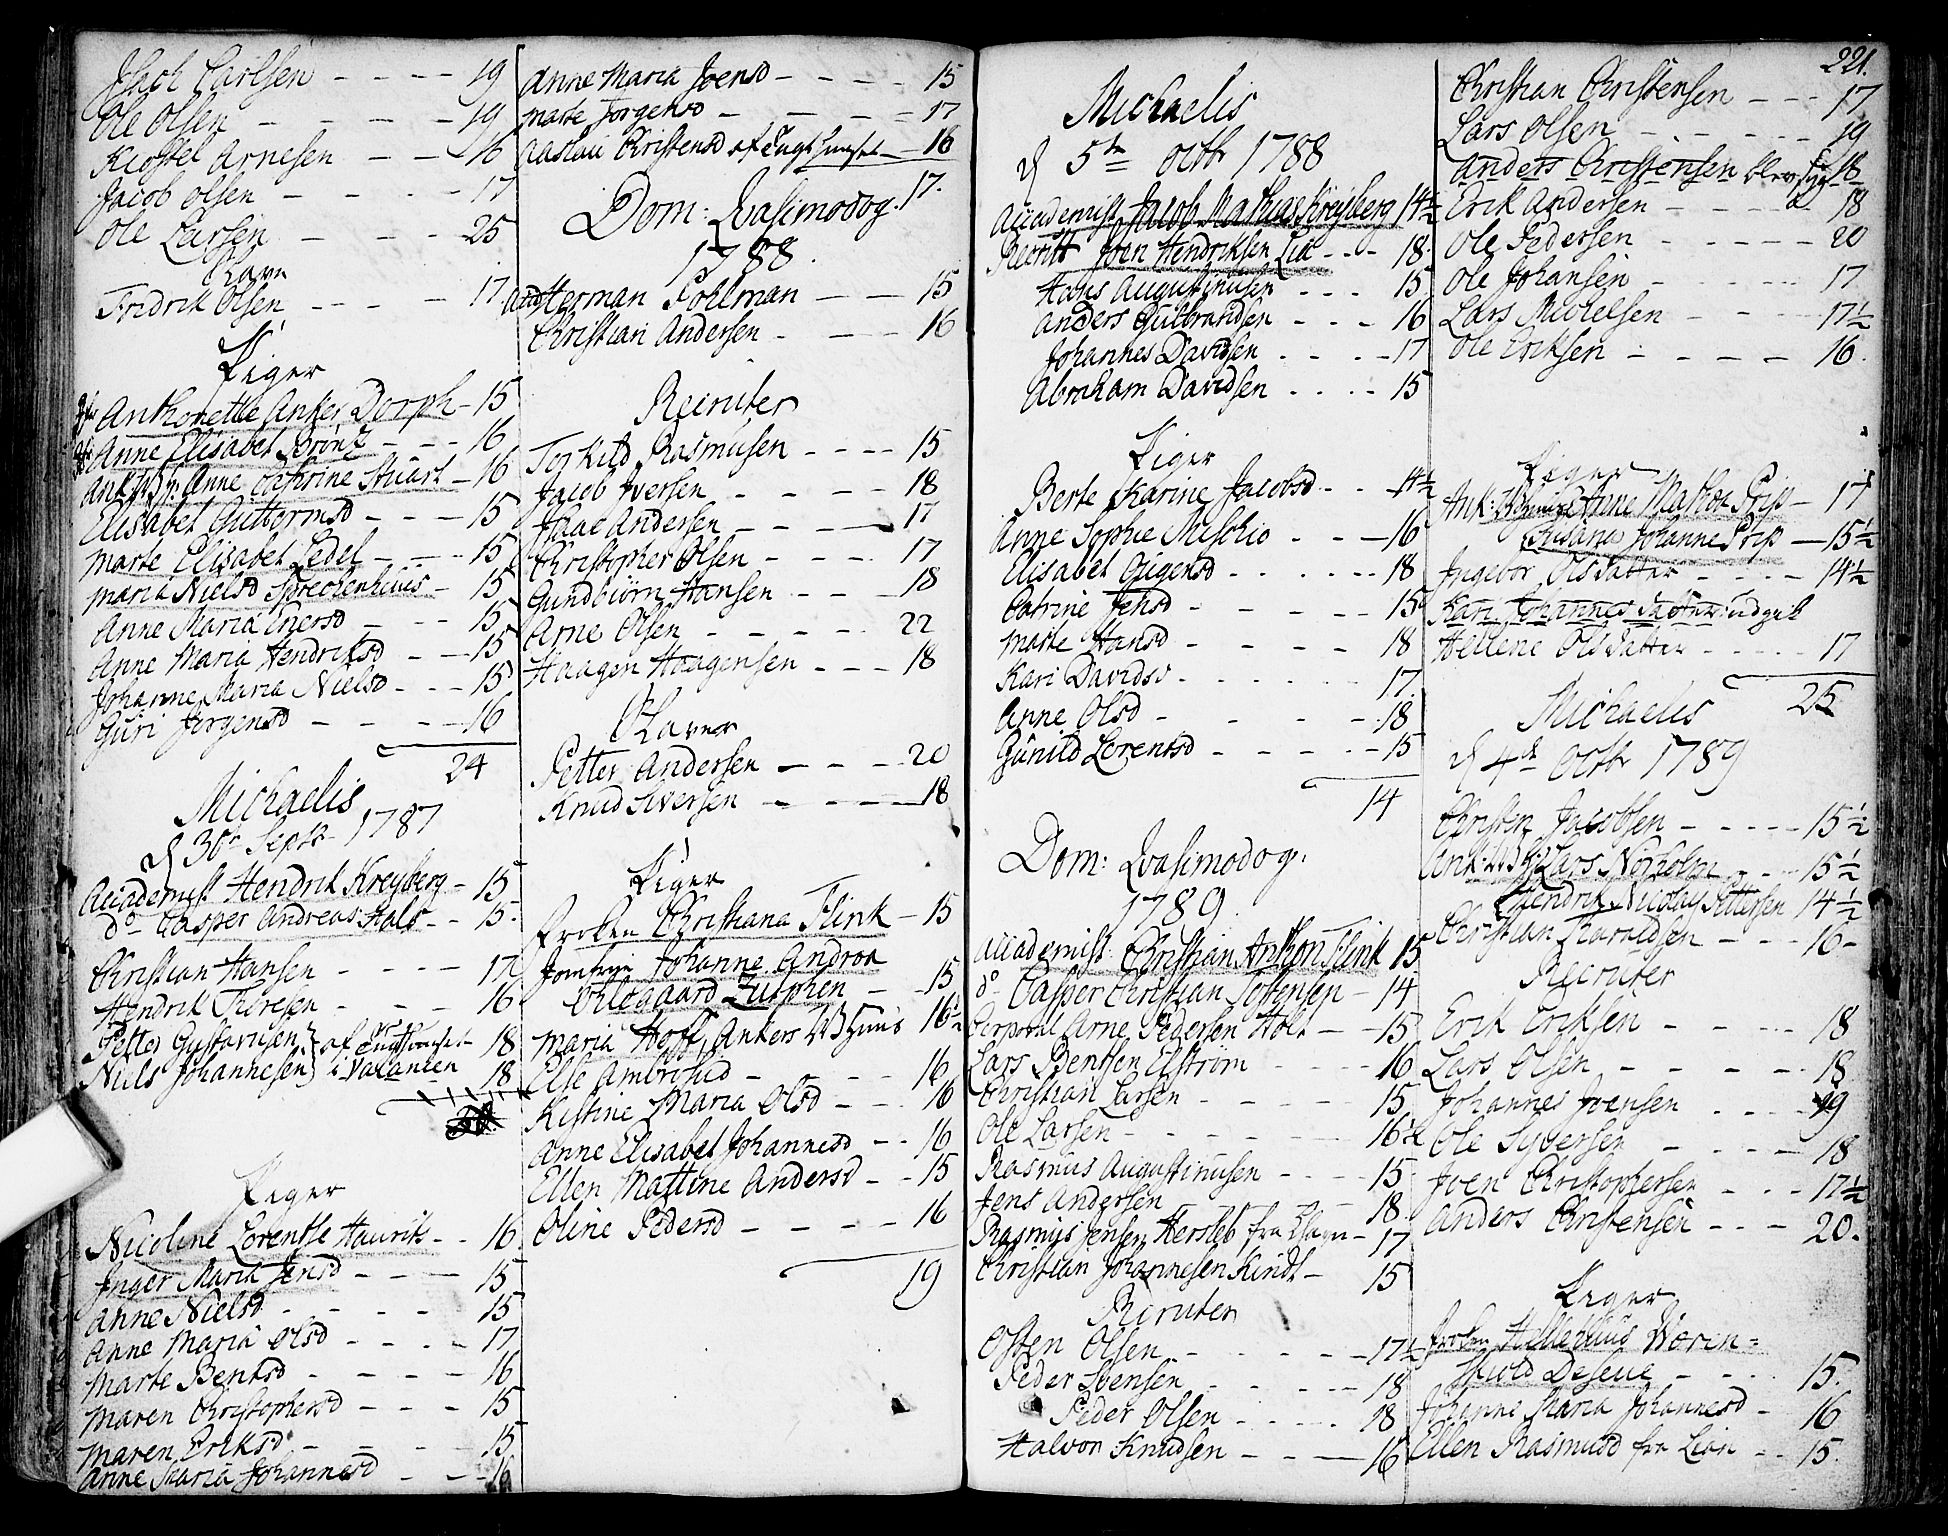 Isach Carlsen - - - - 19
Ole Olsen - - - - 19
Kiostel Arnesen - - - 16
Jacob Olsen - - - - 17
Ole Larsen - - - - 25
Slave
Fredrik Olsen - - - - 17
Piger
Anthonette Anker Dorph - 15
Anne Elisabet Brönz - - - 16
Anne Cathrine Stuart - 16
Elisabet Guttormsd - - - 15
Marte Elisabet Ledel - - - 15
Maria Nielsd Spreckenhuus - 15
Anne Maria Enersd - - - 15
Anne Maria Hendriksd - - - 15
Johanne Maria Nielsd - - - 15
Guri Jörgensd - - - - 16
24
Michaelis
d 30te Septr 1787
Academist Hendrik Kreyberg - 15
do Casper Andreas Hals - - 15
Christian Hansen - - - - 17
Hendrik Thoresen - - - - 16
Petter Gustavusen 18
Niels Johannesen i Vacancen 18
Piger
Nicoline Lorentse Hauriks - - 16
Inger Maria Jensd - - - 15
Anne Nielsd - - - - 15
Anne Maria Olsd - - - - 17
Marte Bentsd - - - - 16
Maren Christophersd - - - 15
Maren Eriksd - - - - 15
Anne Maria Johannesd - - - 16
Anne Maria Joensd - - - - 15
Marte Jörgensd - - - - 17
Aaslau Christensd af 16
17
Dom: Qvasimodog.
1788
Herman Pohlman - - - 15
Christian Andersen - - - - 16
Recruter
Torkild Rasmusen - - - - 15
Jacob Iversen - - - - 18
Isaac Andersen - - - - 17
Christopher Olsen - - - - 17
Gundbiörn Hansen - - - 18
Arne Olsen - - - - - 22
Haagen Haagensen - - - 18
Slaver
Petter Andersen - - - 20
Knud Siversen - - - - 18
Piger
Fröken Christiana Flink - 15
Jomfrue Johanne Andrea
Oldegaard Zutphen - - 15
Maria Hoff, Ankers 16½
Else Ambrosud - - - - 16
Kistine Maria Olsd - - - 16
Anne Elisabet Johannesd - - 16
Ellen Mattine Andersd - - 15
Oline Pedersd - - - - 16
19
Michaelis
d 5te Octbr 1788
Academist Jacob Mathias Kreyberg 14½
Recrutt Joen Hendriksen Lia - - - 18
Hans Augustinusen - - - 15
Anders Gulbrandsen - - - 16
Johannes Davidsen - - - - 17
Abraham Davidsen - - - - 15
Piger
Berte Karine Jacobsd - - - 14½
Anne Sophie Mischio - - - 16
Elisabet Gigensd - - - - - 18
Catrine Jensd - - - - - 15
Marte Hansd - - - - 18
Kari Davidsd - - - - - 17
Anne Olsd - - - - - 18
Gunild Lorentsd - - - - - 15
14
Dom: Qvasimodog:
1789
Academist Christian Anthon Flink 15
do Casper Christian Sörensen - 14
Corporal Arne Pedersen Holt - - 15
Lars Bentsen Elström - - - - 16
Christian Larsen - - - - - 15
Ole Larsen - - - - - - 16½
Rasmus Augustinusen - - - - 15
Jens Andersen - - - 18
Rasmus Jensen Hersleb fra - 17
Christian Johannesen Kindt - 15
Recruter
Osten Olsen - - - - - 17½
Peder Svensen - - - - - 18
Peder Olsen - - - - - 18
Halvor Knudsen - - - - 16
221.
Christian Christensen - - - 17
Lars Olsen - - - - - 19
Anders Christensen blev syg 18
Erik Andersen - - - - 18
Ole Pedersen - - - - - 20
Ole Johansen - - - - - 17
Lars Michelsen - - - - 17½
Ole Eriksen - - - - - 16.
Piger
Anne Mathea Prip - 17
Susane Johanne Prip - 15½
Ingebor Olsdatter - - - - 14½
Kari Johannesdatter: udgik
Hellene Olsdatter - - - - - 17
25
Michaelis
d 4de Octbr 1789
Christen Jacobsen - - - - 15½
Lars Norholm - - - 15½
Hendrik Nicolay Pettersen 14½
Christian Haraldsen - - - 16 -
Recruter
Erik Eriksen - - - - 18
Lars Olsen - - - - - 18
Johannes Joensen - - - - 19
Ole Syversen - - - - - 18
Joen Christophersen - - - 17½
Anders Christensen - - - 20.
Piger
Fröken Hedevius Woren=
skiold Deseue - - - - 15.
Johanne Maria Johannesd - 16
Ellen Rasmusd fra Lian - - 15.